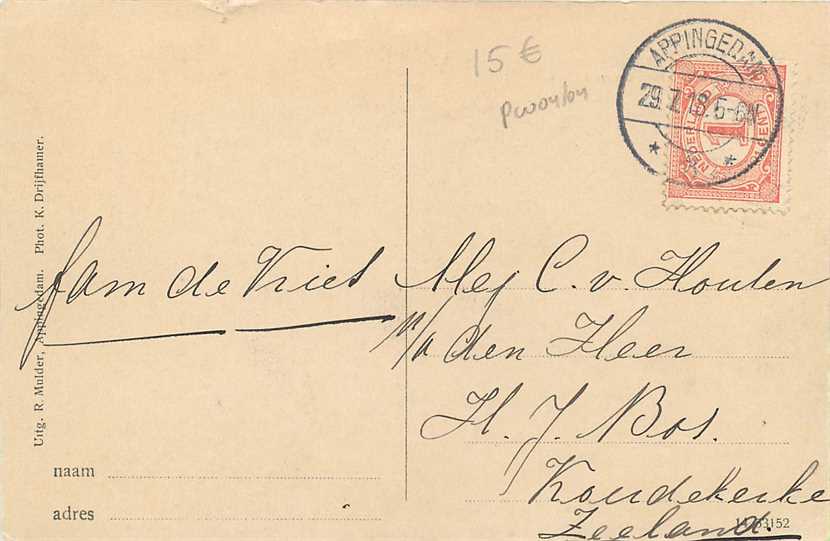 15 €
APPINGEDAM
29.7.13.5-6N
NEDERLAND
1
Uitg. R. Mulder, Appingedam. Phot. K. Drijfhamer.
fam de Vries
Mej C. v. Houten
p/a den Heer
H. J. Bos.
Koudekerke
Zeeland.
naam
adres